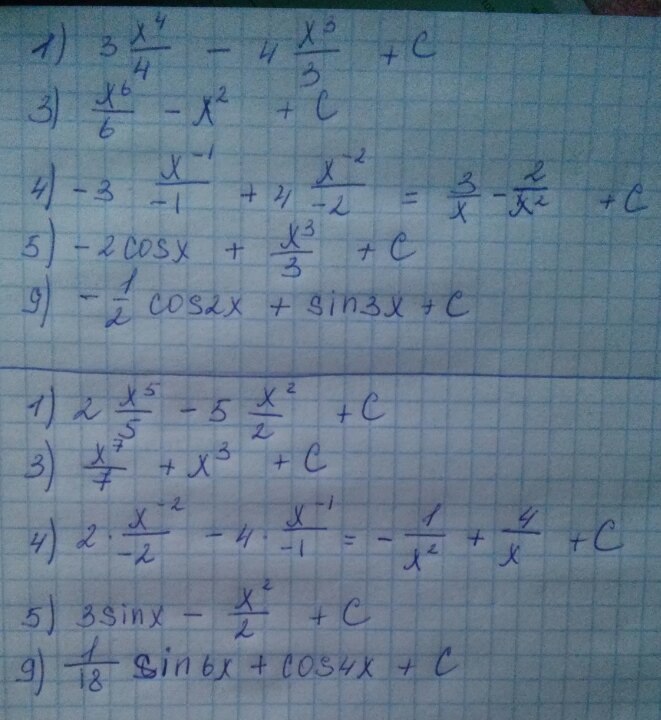 1) 3 x⁴/4 - 4 x³/3 + C
3) x⁶/6 - x² + C
4) -3 · x⁻¹/-1 + 4 x⁻²/-2 = 3/x - 2/x² + C
5) -2cosx + x³/3 + C
9) -1/2 cos2x + sin3x + C
1) 2 x⁵/5 - 5 x²/2 + C
3) x⁷/7 + x³ + C
4) 2 · x⁻²/-2 - 4 · x⁻¹/-1 = - 1/x² + 4/x + C
5) 3sinx - x²/2 + C
9) 1/18 sin6x + cos4x + C